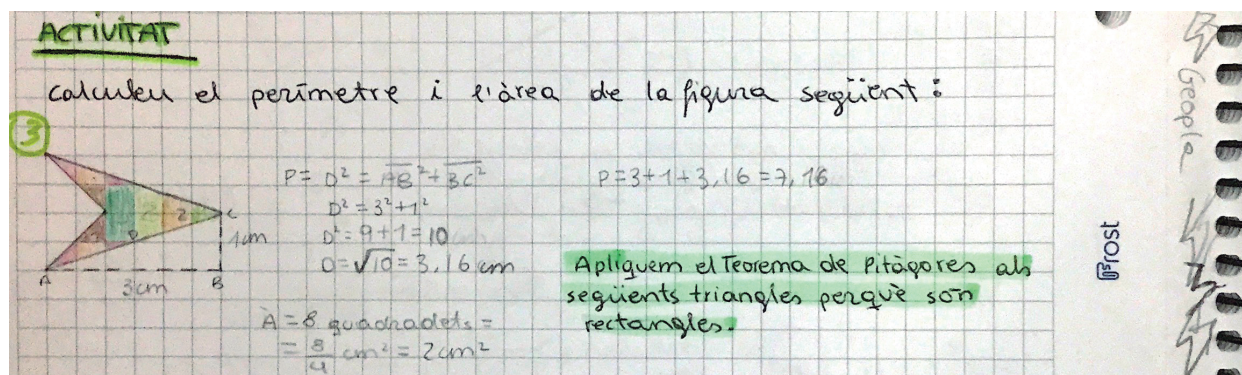 ACTIVITAT
calculeu el perímetre i l'àrea de la figura següent:
3
P= D² = AB² + BC²
P=3+1+3,16=7,16
D² = 3²+1²
D² = 9+1=10
D=√10=3,16 cm
2
D
C
1cm
A
3cm
B
Apliquem el Teorema de Pitàgores als
següents triangles perquè són
rectangles.
A = 8 quadradets =
= 8/4 cm² = 2cm²
Geopla
Frost